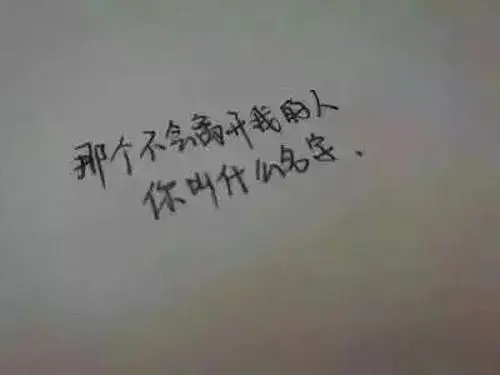 那个不会离开我的人
你叫什么名字.